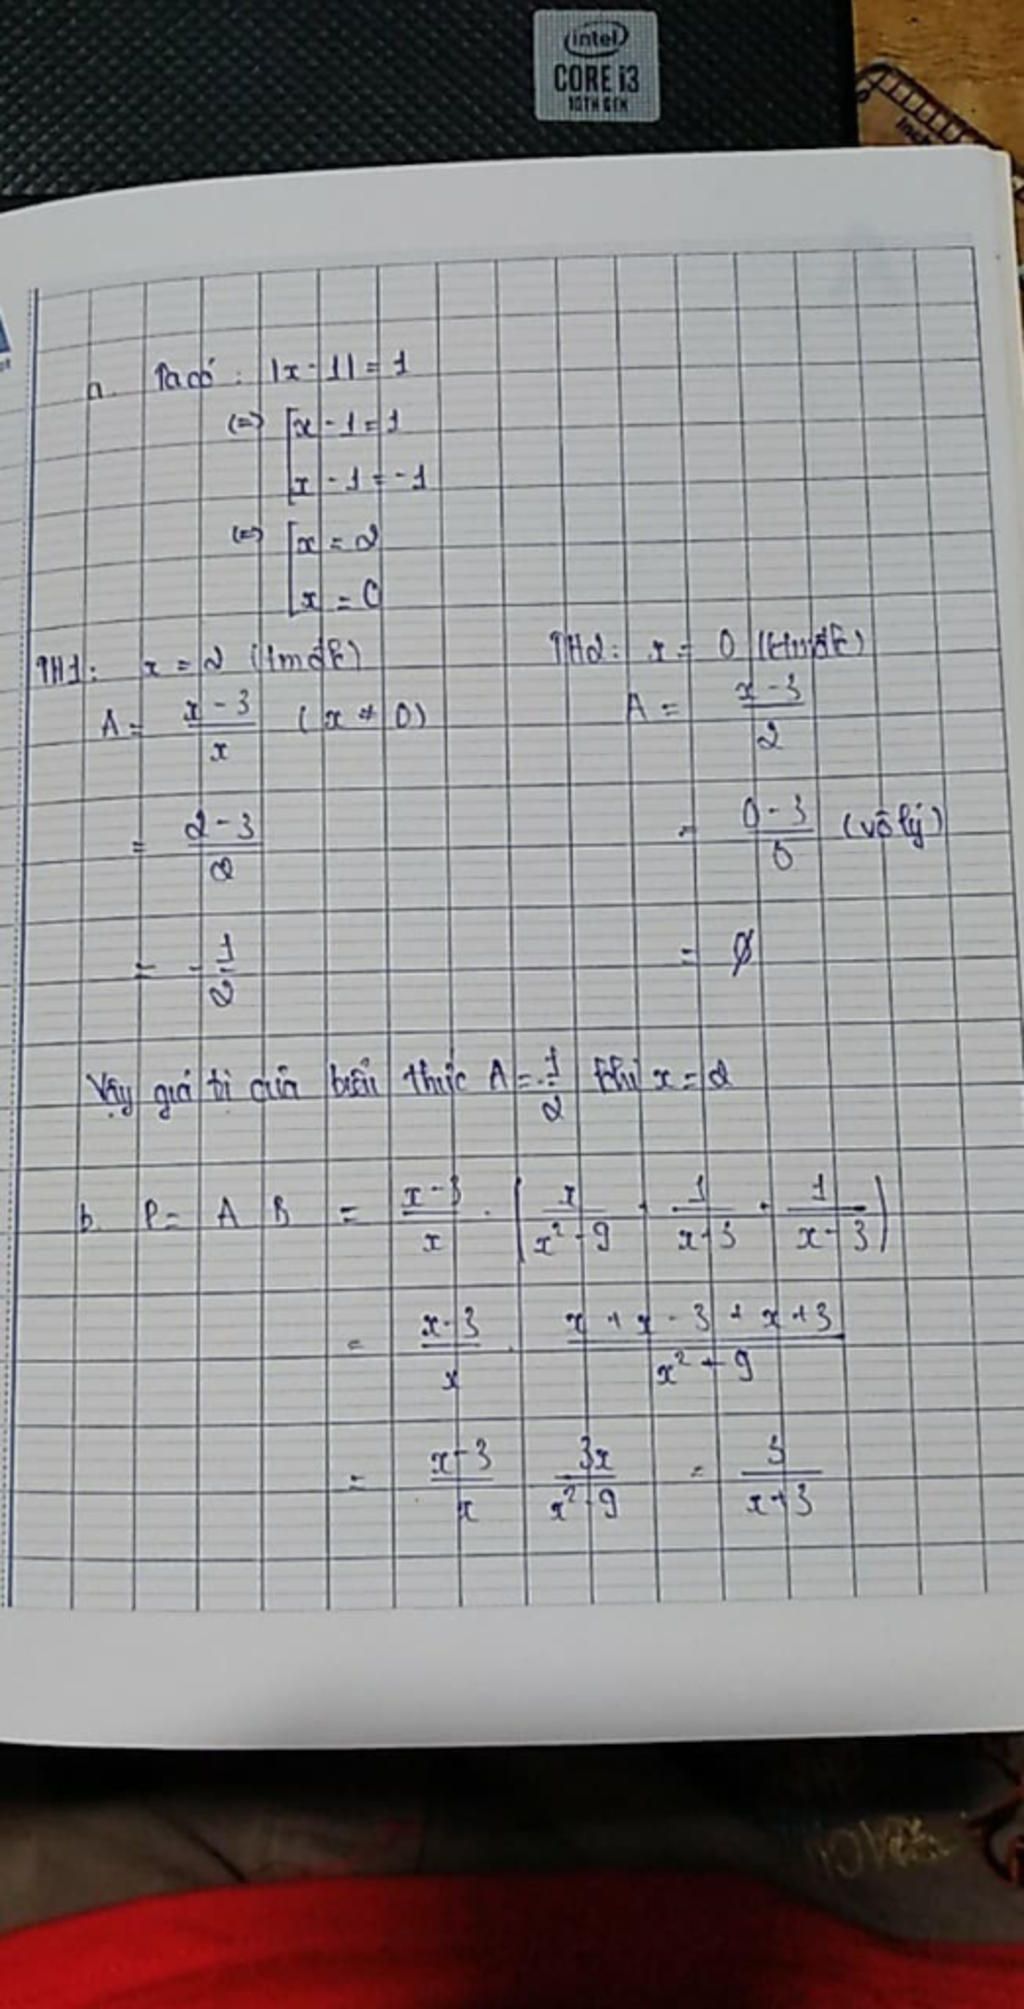 intel
CORE i3
10TH GEN
a. Ta có: |x - 1| = 1
(=) [x - 1 = 1
[x - 1 = -1
(=) [x = 2
[x = 0
TH1: x = 2 (tmđk)
A = \frac{x - 3}{x} (x ≠ 0)
= \frac{2 - 3}{2}
= -\frac{1}{2}
TH2: x = 0 (ktmđk)
A = \frac{x - 3}{2}
= \frac{0 - 3}{0} (vô lý)
= ∅
Vậy giá tri của biểu thức A = -\frac{1}{2} khi x = 2
b. P = A . B = \frac{x - 3}{x} . (\frac{x}{x² - 9} + \frac{1}{x + 3} + \frac{1}{x - 3})
= \frac{x - 3}{x} . \frac{x + x - 3 + x + 3}{x² - 9}
= \frac{x - 3}{x} . \frac{3x}{x² - 9} = \frac{3}{x + 3}